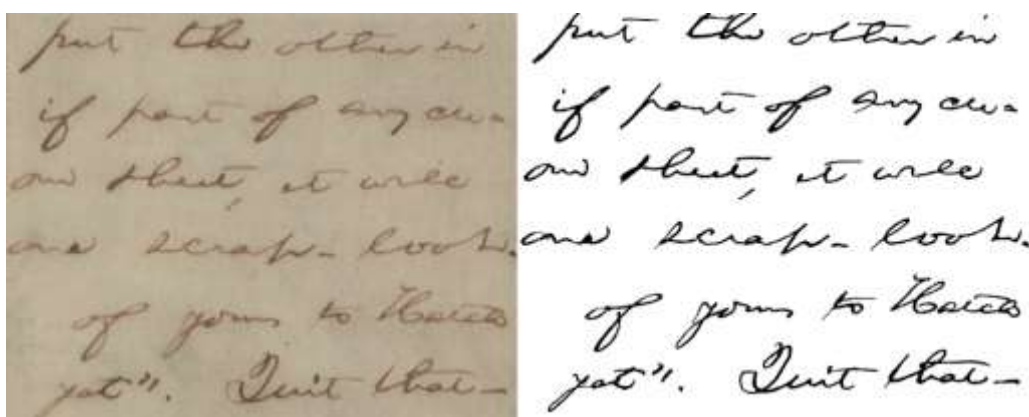 put the other in
if part of any
on sheet, it will
one scrap-book.
of yours to
yet". Quit that-
put the other in
if part of any
on sheet, it will
one scrap-book.
of yours to
yet". Quit that-